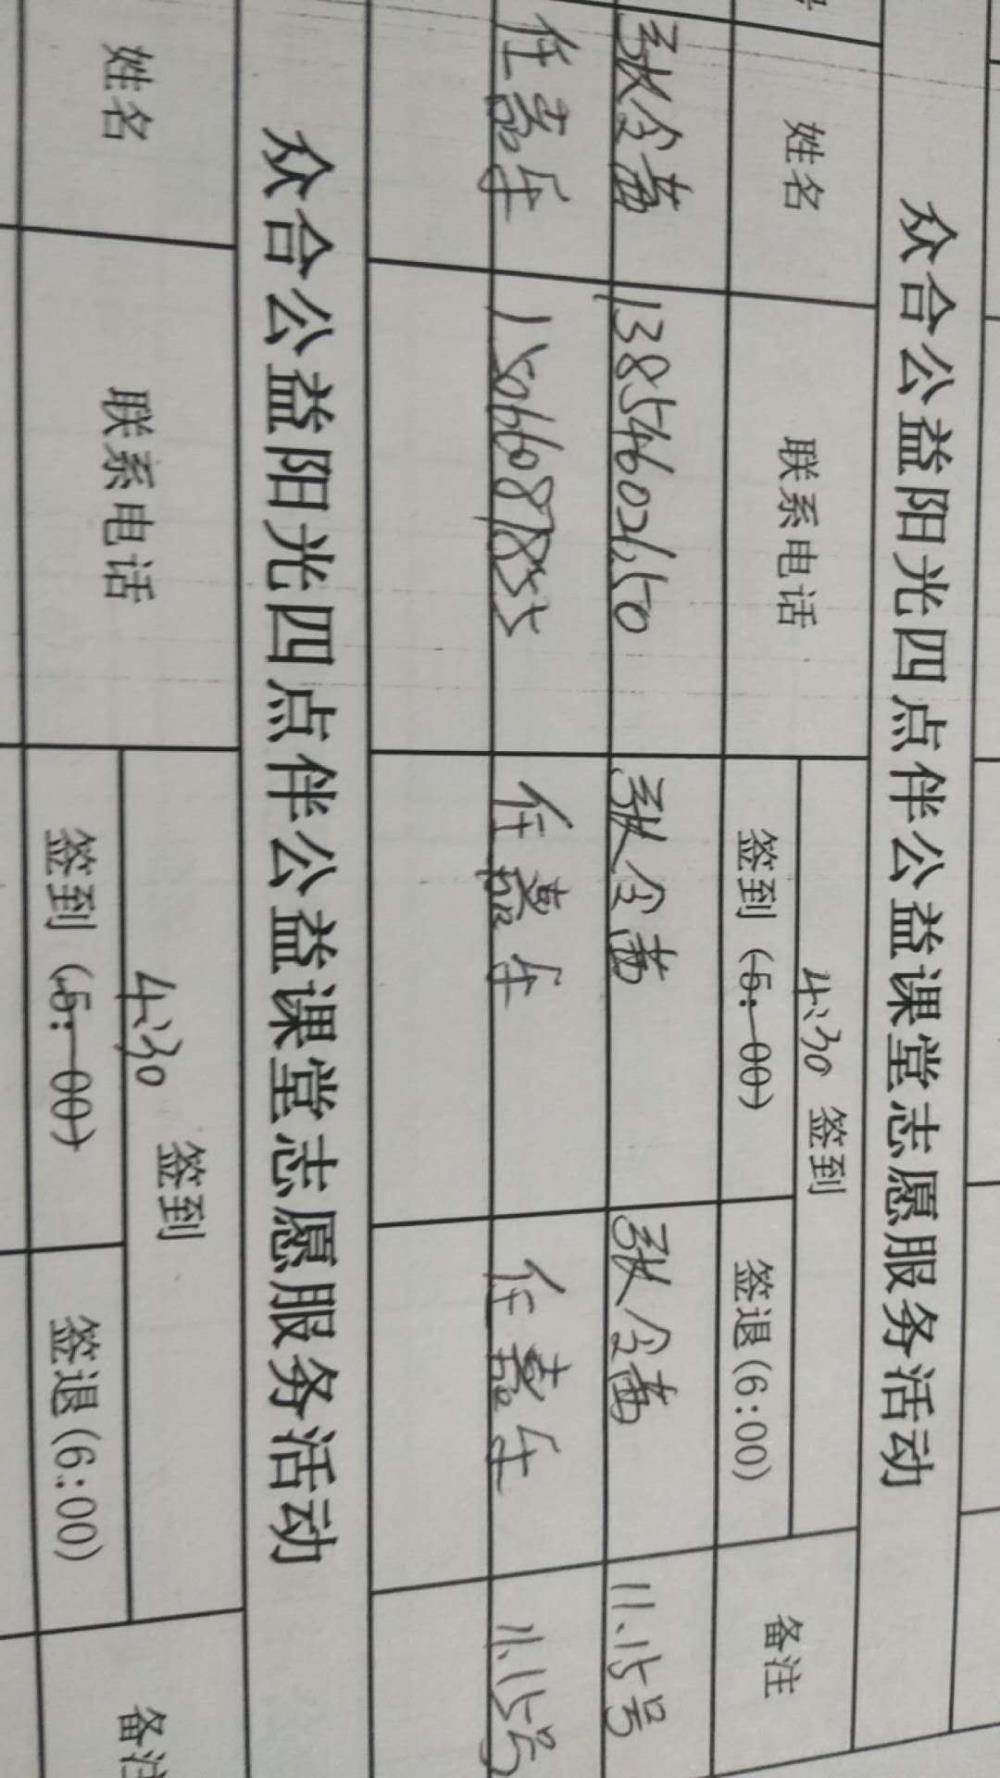 众合公益阳光四点伴公益课堂志愿服务活动
姓名 联系电话 4:30 签到 备注
签到（5:00） 签退(6:00)
张金茜 13854602650 张金茜 张金茜 11.15号
任嘉乐 15066087855 任嘉乐 任嘉乐 11.15号
众合公益阳光四点伴公益课堂志愿服务活动
姓名 联系电话 4:30 签到 备注
签到（5:00） 签退(6:00)